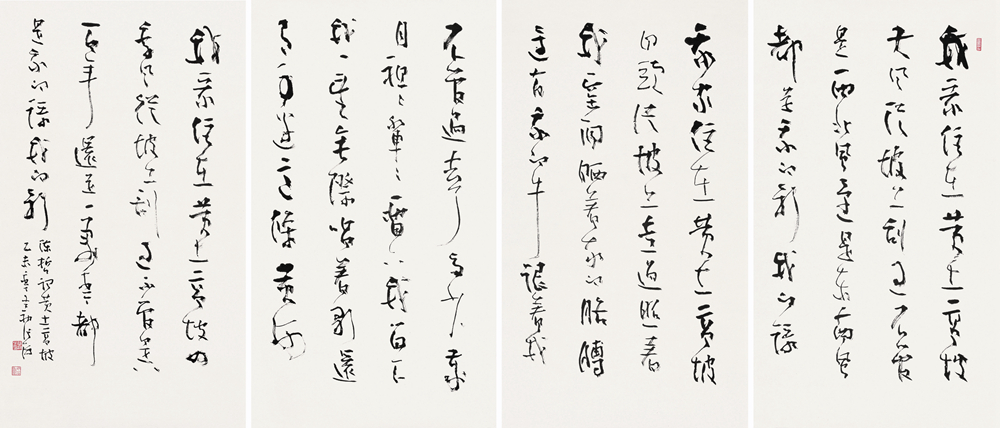 我家住在黄土高坡
大风从坡上刮过不管
是西北風還是东南風
都是我的歌我的歌
我家住在黄土高坡
日头从坡上走過照着
我窑洞晒着我的胳膊
還有我的牛跟着我
不管過去了多少歲
月祖々輩々留下我
我一望無際唱着歌還
有身邊這條黄河
我家住在黄土高坡四
季風從坡上刮過不管是八
百年還是一萬年都
是我的歌我的歌
陈哲詞黄土高坡
乙未